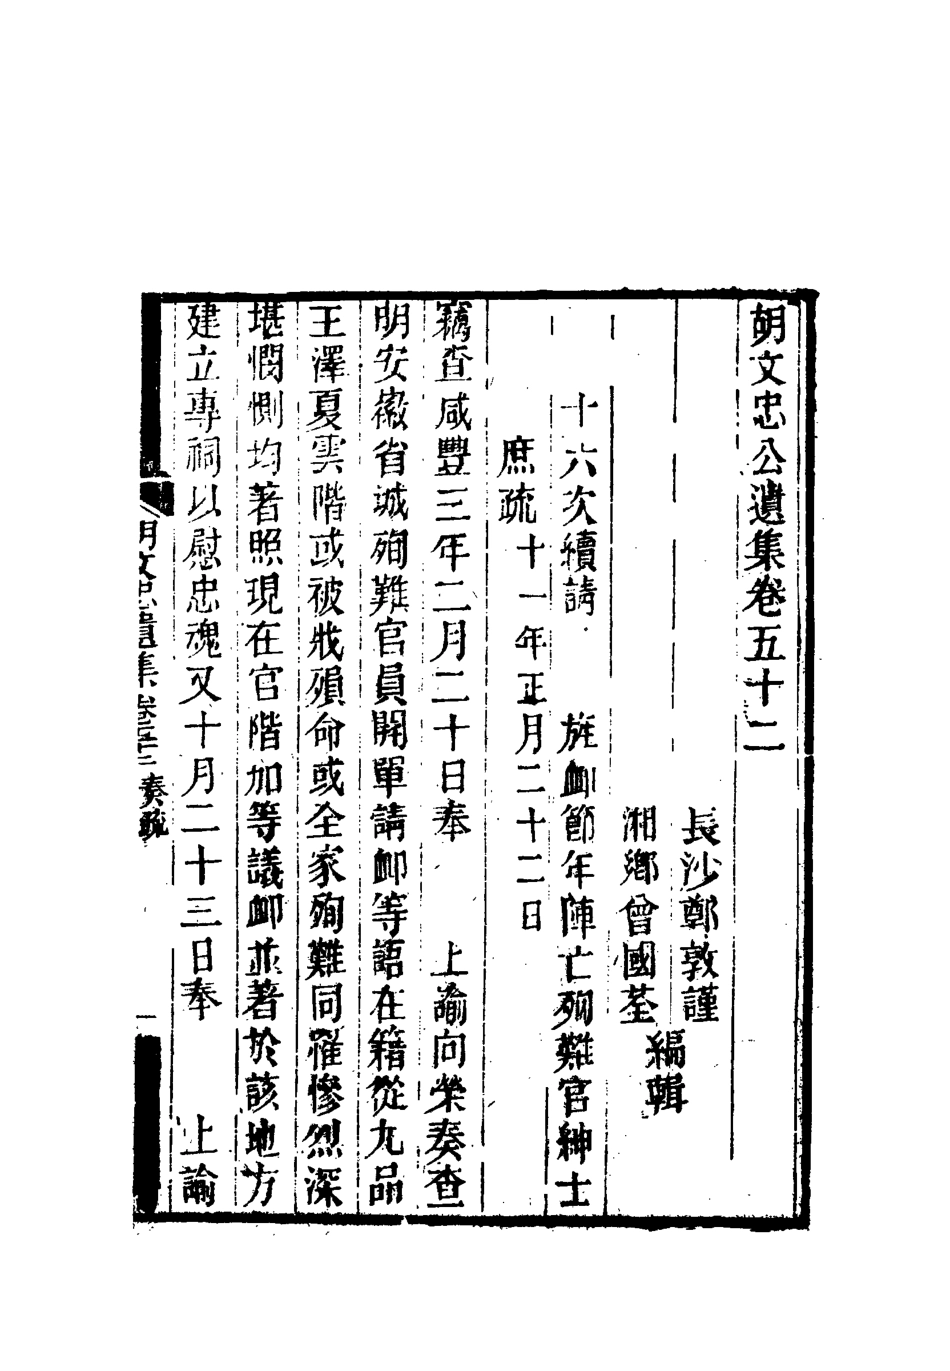 胡文忠公遺集卷五十二
長沙鄭敦謹
湘鄉曾國荃
編輯
十六次續請 旌卹節年陣亡殉難官紳士
庶疏十一年正月二十二日
竊查咸豐三年二月二十日奉 上諭向榮奏查
明安徽省城殉難官員開單請卹等語在籍從九品
王澤夏雲階或被戕殞命或全家殉難同罹慘烈深
堪憫惻均著照現在官階加等議卹並著於該地方
建立專祠以慰忠魂又十月二十三日奉 上諭
胡文忠遺集卷五十二 奏疏 一